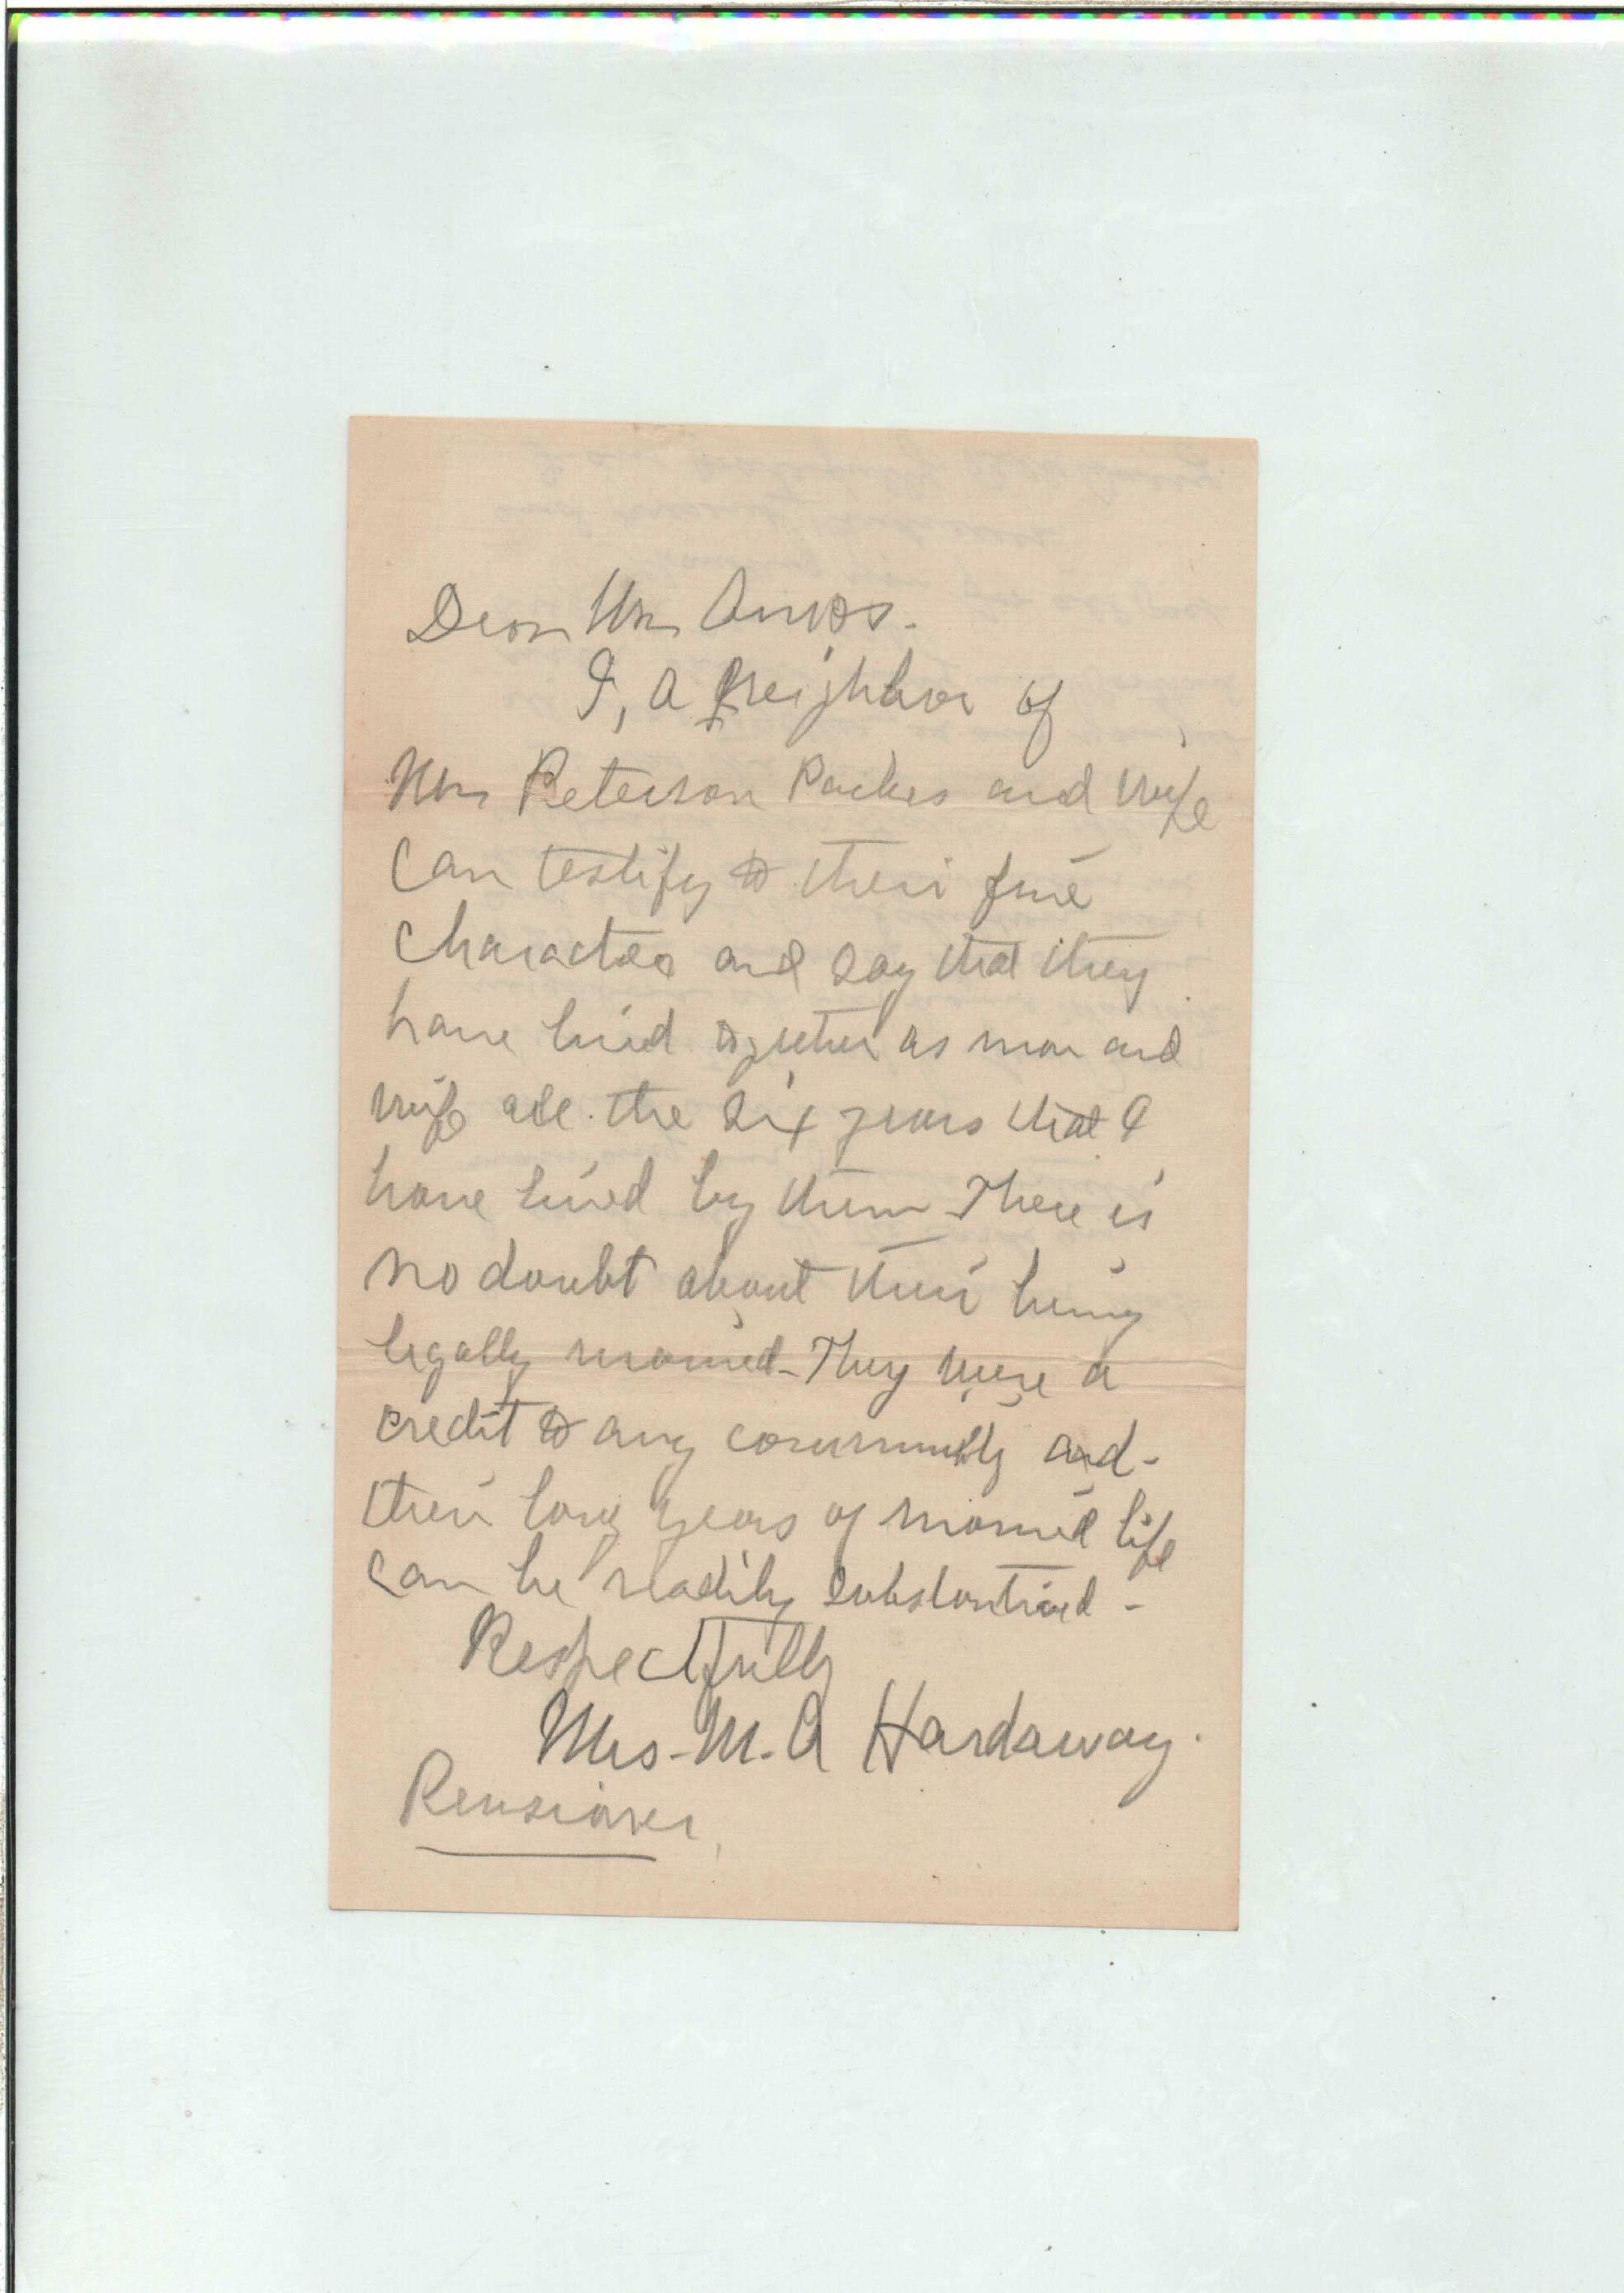 Dear Mr Amos.
I, a neighbor of
Mr Peterson Parker and wife
can testify to their fine
character and say that they
have lived together as man and
wife all the six years that I
have lived by them There is
no doubt about their being
legally married - They were a
credit to any community and -
their long years of married life
can be readily substantied -
Respectfully
Mrs - M. A Hardaway.
Pensioner